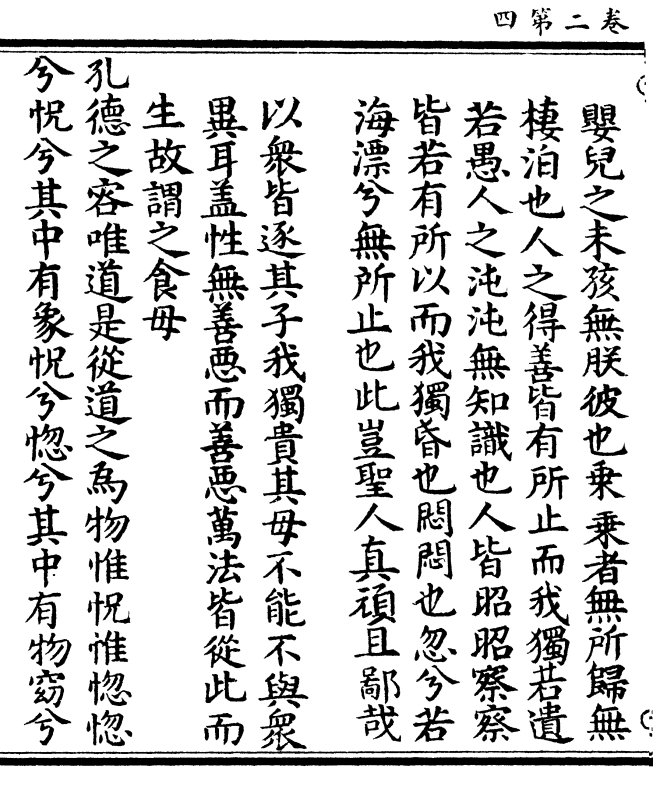 卷二第四
嬰兒之未孩無朕彼也乗乗者無所歸無
棲泊也人之得善皆有所止而我獨若遺
若愚人之沌沌無知識也人皆昭昭察察
皆若有所以而我獨昏也悶悶也忽兮若
海漂兮無所止也此豈聖人真頑且鄙哉
以衆皆逐其子我獨貴其母不能不與衆
異耳盖性無善惡而善惡萬法皆從此而
生故謂之食母
孔德之容唯道是從道之為物惟怳惟惚惚
兮怳兮其中有象怳兮惚兮其中有物窈兮